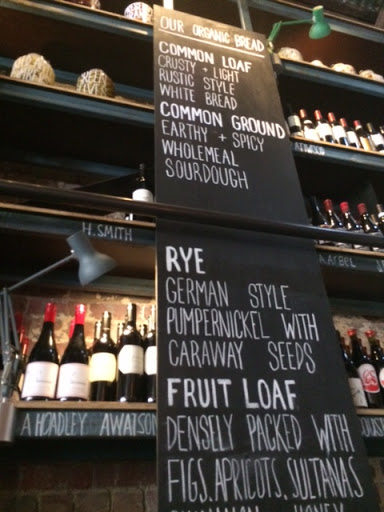 OUR ORGANIC BREAD
COMMON LOAF
CRUSTY + LIGHT
RUSTIC STYLE
WHITE BREAD
COMMON GROUND
EARTHY + SPICY
WHOLEMEAL
SOURDOUGH
RYE
GERMAN STYLE
PUMPERNICKEL WITH
CARAWAY SEEDS
FRUIT LOAF
DENSELY PACKED WITH
FIGS, APRICOTS, SULTANAS
H. SMITH
A HOADLEY